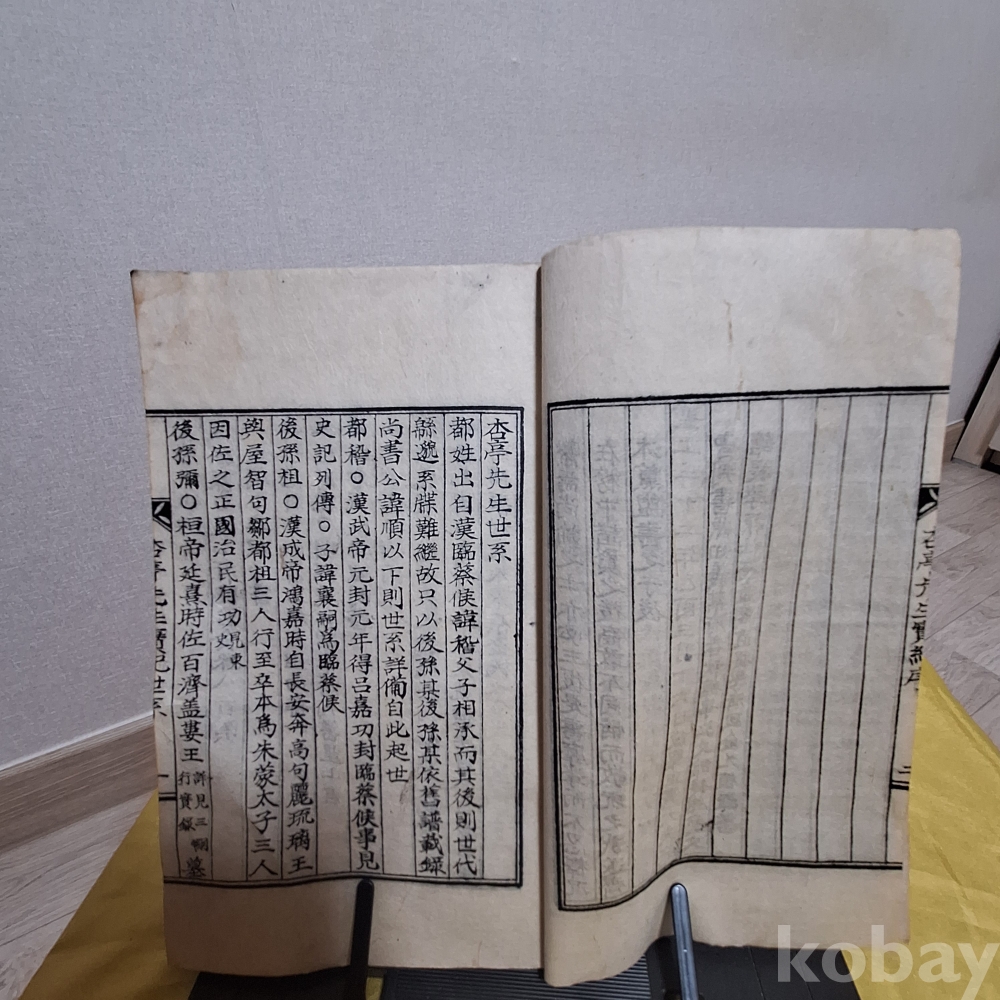 杏亭先生世系
都姓出自漢臨蔡侯諱稽父子相承而其後則世代
緜邈系牒難繼故只以後孫某後孫某依舊譜載錄
尚書公諱順以下則世系詳備自此起世
都稽○漢武帝元封元年得呂嘉功封臨蔡侯事見
史記列傳○子諱襄嗣爲臨蔡侯
後孫祖○漢成帝鴻嘉時自長安奔高句麗琉璃王
與屋智句鄒都祖三人行至卒本爲朱蒙太子三人
因佐之正國治民有功見東史
後孫彌○桓帝延熹時佐百濟盖婁王詳見三綱行實錄
杏亭先生實紀世系 一
杏亭先生實紀序 二
kobay